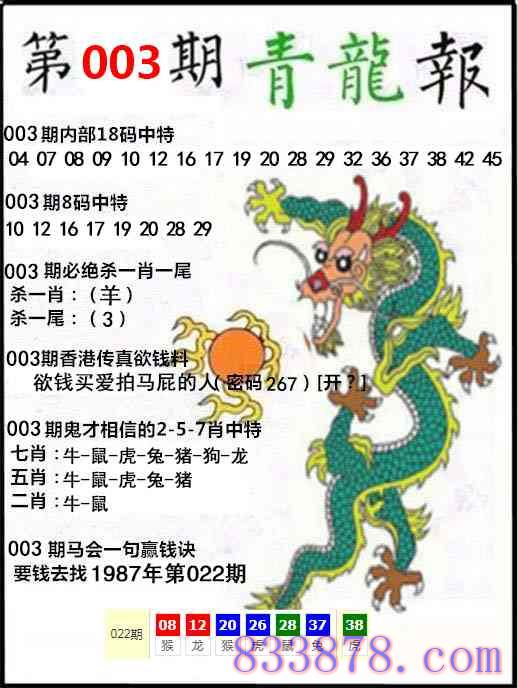 第003期青龍報
003期内部18码中特
04 07 08 09 10 12 16 17 19 20 28 29 32 36 37 38 42 45
003期8码中特
10 12 16 17 19 20 28 29
003 期必绝杀一肖一尾
杀一肖：（羊）
杀一尾：（3）
003期香港传真欲钱料
欲钱买爱拍马屁的人(密码267)[开？]
003期鬼才相信的2-5-7肖中特
七肖：牛-鼠-虎-兔-猪-狗-龙
五肖：牛-鼠-虎-兔-猪
二肖：牛-鼠
003 期马会一句赢钱诀
要钱去找1987年第022期
022期 08 12 20 26 28 37 38
猴 龙 猴 虎 鼠 兔 虎
833878.com